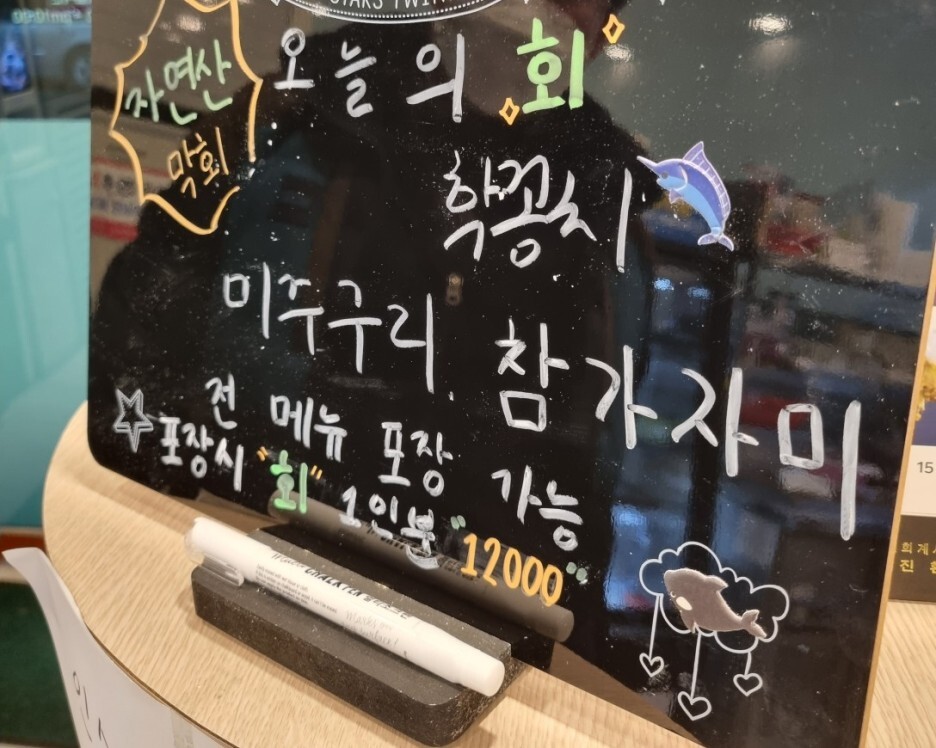 자연산
막회
오늘의 회
학꽁치
미주구리
참가자미
전 메뉴 포장 가능
포장시 "회" 1인분 "12000"
CHALK
15
회계
진